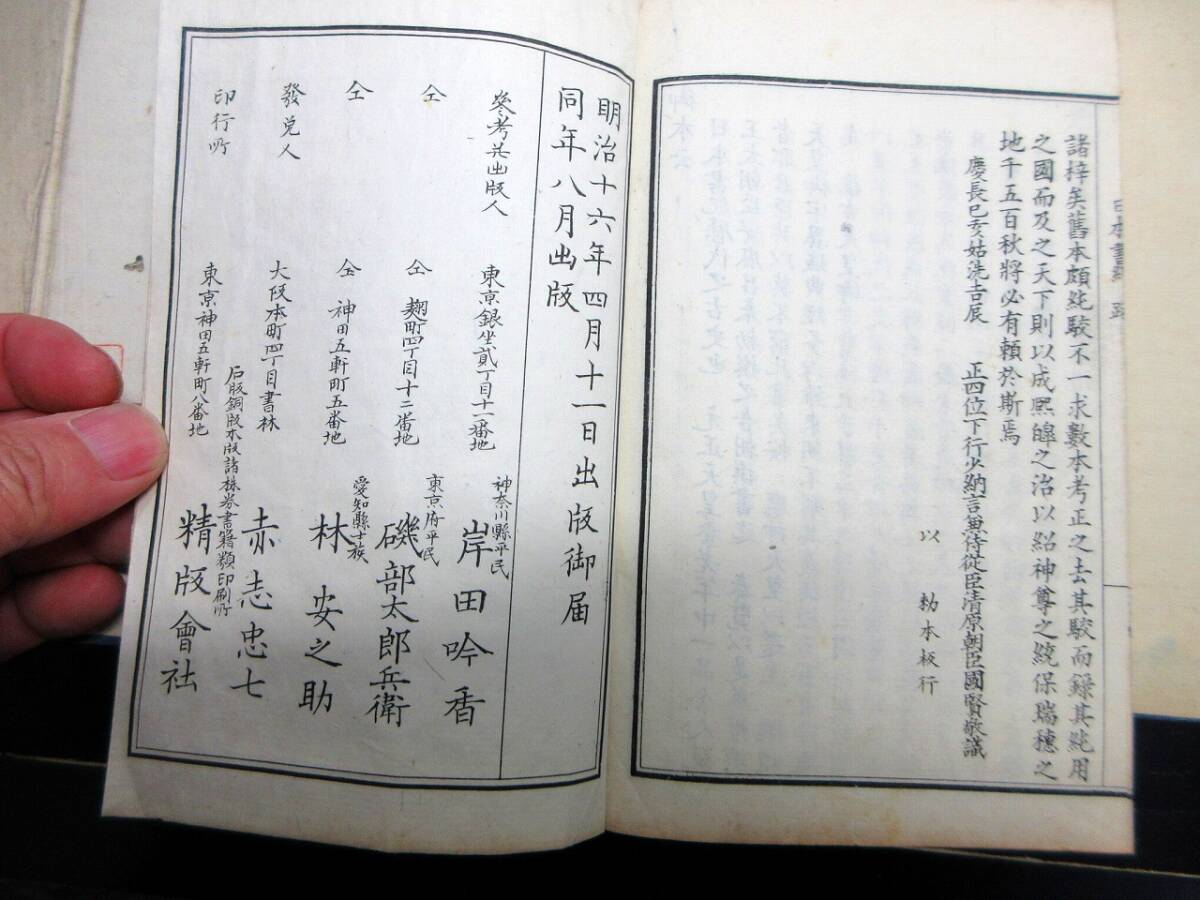 諸梓矣舊本頗純駁不一求數本考正之去其駁而録其純用
之國而及之天下則以成熙皥之治以紹神尊之統保瑞穗之
地千五百秋將必有頼於斯焉
慶長己亥姑洗吉辰 正四位下行少納言兼侍從臣清原朝臣國賢敬識
以 勅本板行
明治十六年四月十一日出版御届
同年八月出版
參考并出版人 東京銀坐貳丁目十一番地 神奈川縣平民 岸田吟香
仝 仝 麹町四丁目十二番地 東京府平民 磯部太郎兵衛
仝 仝 神田五軒町五番地 愛知縣士族 林安之助
發兌人 大阪本町四丁目書林 赤志忠七
印行所 東京神田五軒町八番地 石版銅版木版諸株券書籍類印刷所 精版會社